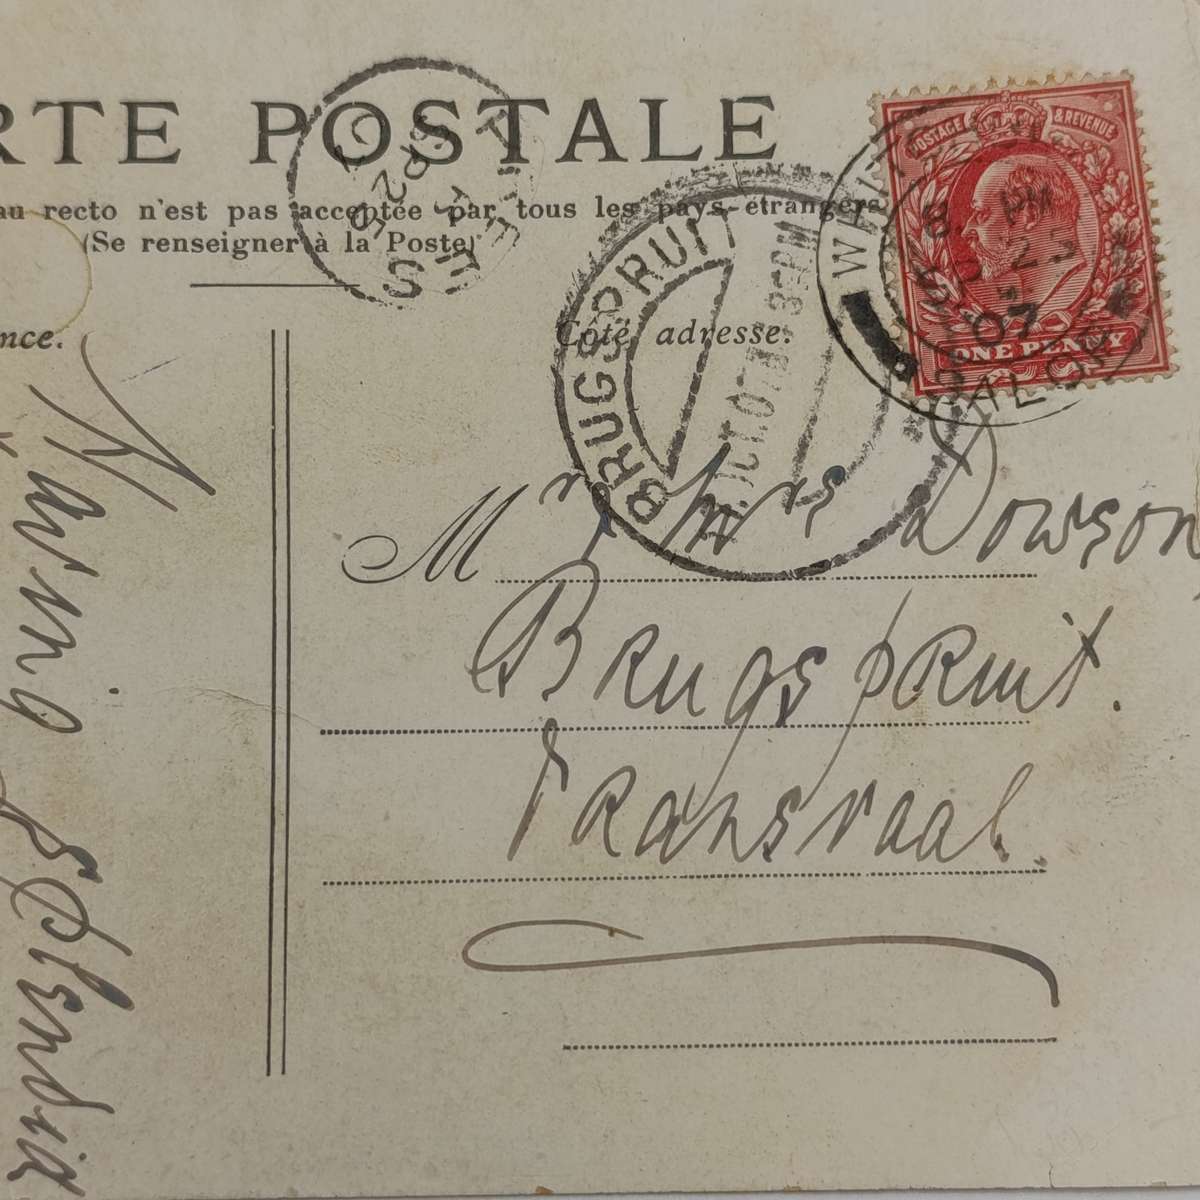 RTE POSTALE
au recto n'est pas acceptée par tous les pays étrangers
(Se renseigner à la Poste)
nce.
Côté adresse.
POSTAGE & REVENUE
ONE PENNY
PM
23
07
BRUGSPRUIT
OCT. 07
PM
M r & Mrs Dowson
Brugspruit.
Transvaal.
having
splendid